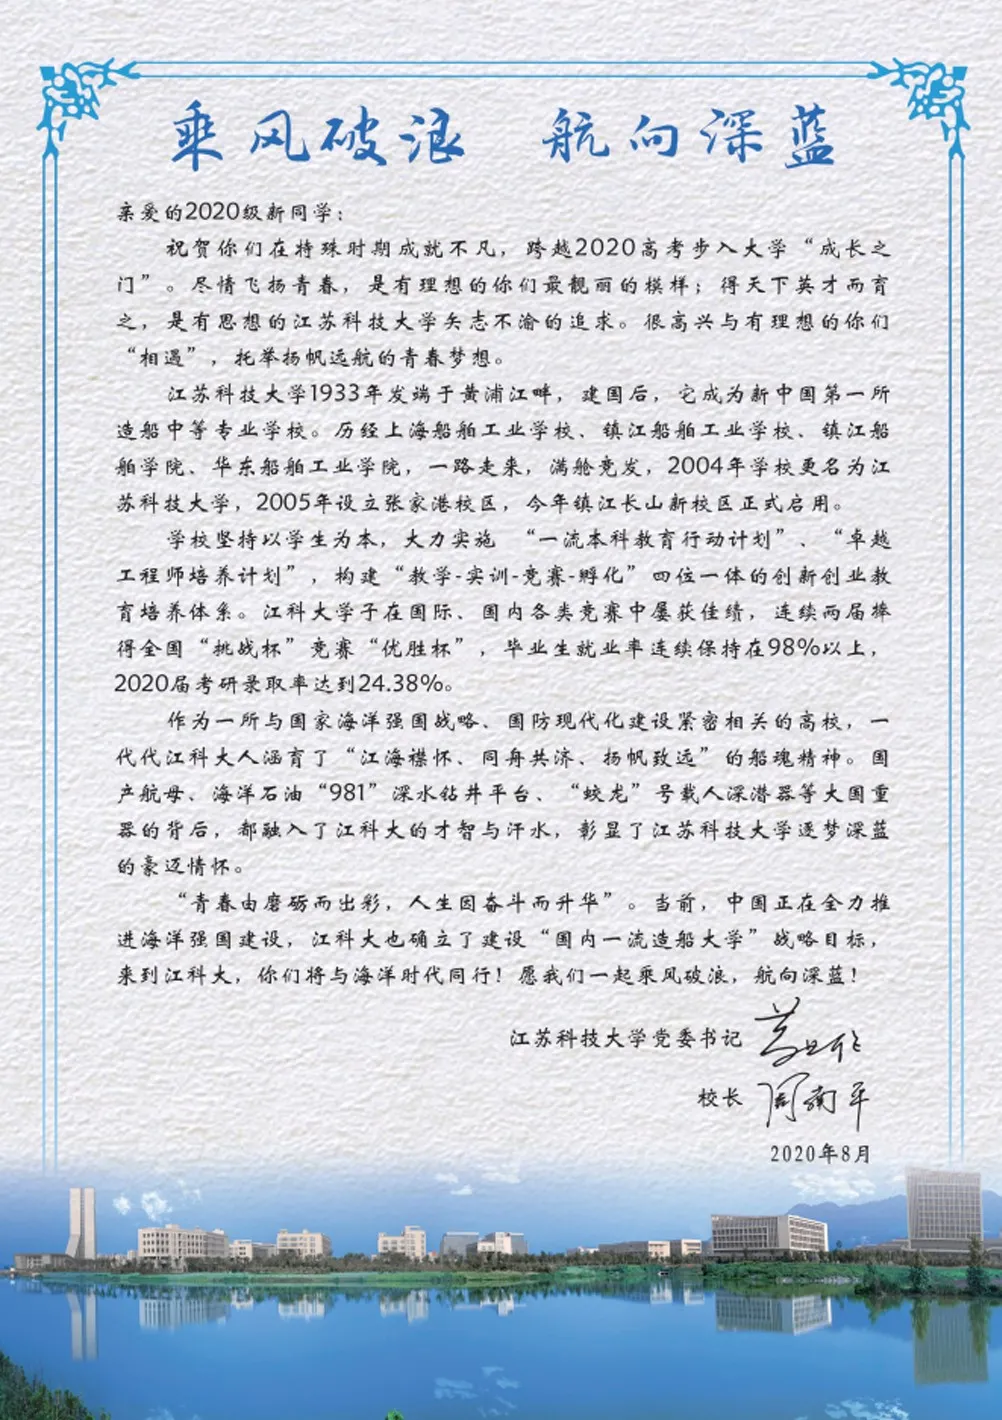 乘风破浪 航向深蓝
亲爱的2020级新同学：
祝贺你们在特殊时期成就不凡，跨越2020高考步入大学“成长之
门”。尽情飞扬青春，是有理想的你们最靓丽的模样；得天下英才而育
之，是有思想的江苏科技大学矢志不渝的追求。很高兴与有理想的你们
“相遇”，托举扬帆远航的青春梦想。
江苏科技大学1933年发端于黄浦江畔，建国后，它成为新中国第一所
造船中等专业学校。历经上海船舶工业学校、镇江船舶工业学校、镇江船
舶学院、华东船舶工业学院，一路走来，满舱竞发，2004年学校更名为江
苏科技大学，2005年设立张家港校区，今年镇江长山新校区正式启用。
学校坚持以学生为本，大力实施 “一流本科教育行动计划”、“卓越
工程师培养计划”，构建“教学-实训-竞赛-孵化”四位一体的创新创业教
育培养体系。江科大学子在国际、国内各类竞赛中屡获佳绩，连续两届捧
得全国“挑战杯”竞赛“优胜杯”，毕业生就业率连续保持在98%以上，
2020届考研录取率达到24.38%。
作为一所与国家海洋强国战略、国防现代化建设紧密相关的高校，一
代代江科大人涵育了“江海襟怀、同舟共济、扬帆致远”的船魂精神。国
产航母、海洋石油“981”深水钻井平台、“蛟龙”号载人深潜器等大国重
器的背后，都融入了江科大的才智与汗水，彰显了江苏科技大学逐梦深蓝
的豪迈情怀。
“青春由磨砺而出彩，人生因奋斗而升华”。当前，中国正在全力推
进海洋强国建设，江科大也确立了建设“国内一流造船大学”战略目标，
来到江科大，你们将与海洋时代同行！愿我们一起乘风破浪，航向深蓝！
江苏科技大学党委书记
校长 周南平
2020年8月